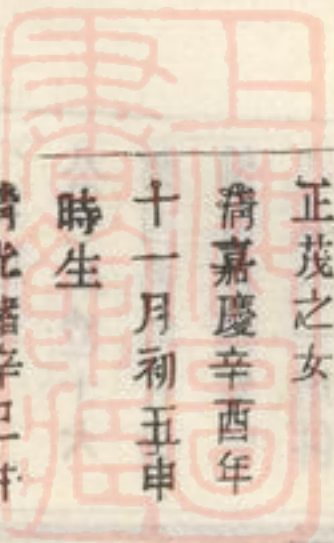 正茂之女
清嘉慶辛酉年
十一月初五申
時生
清光緒辛巳年